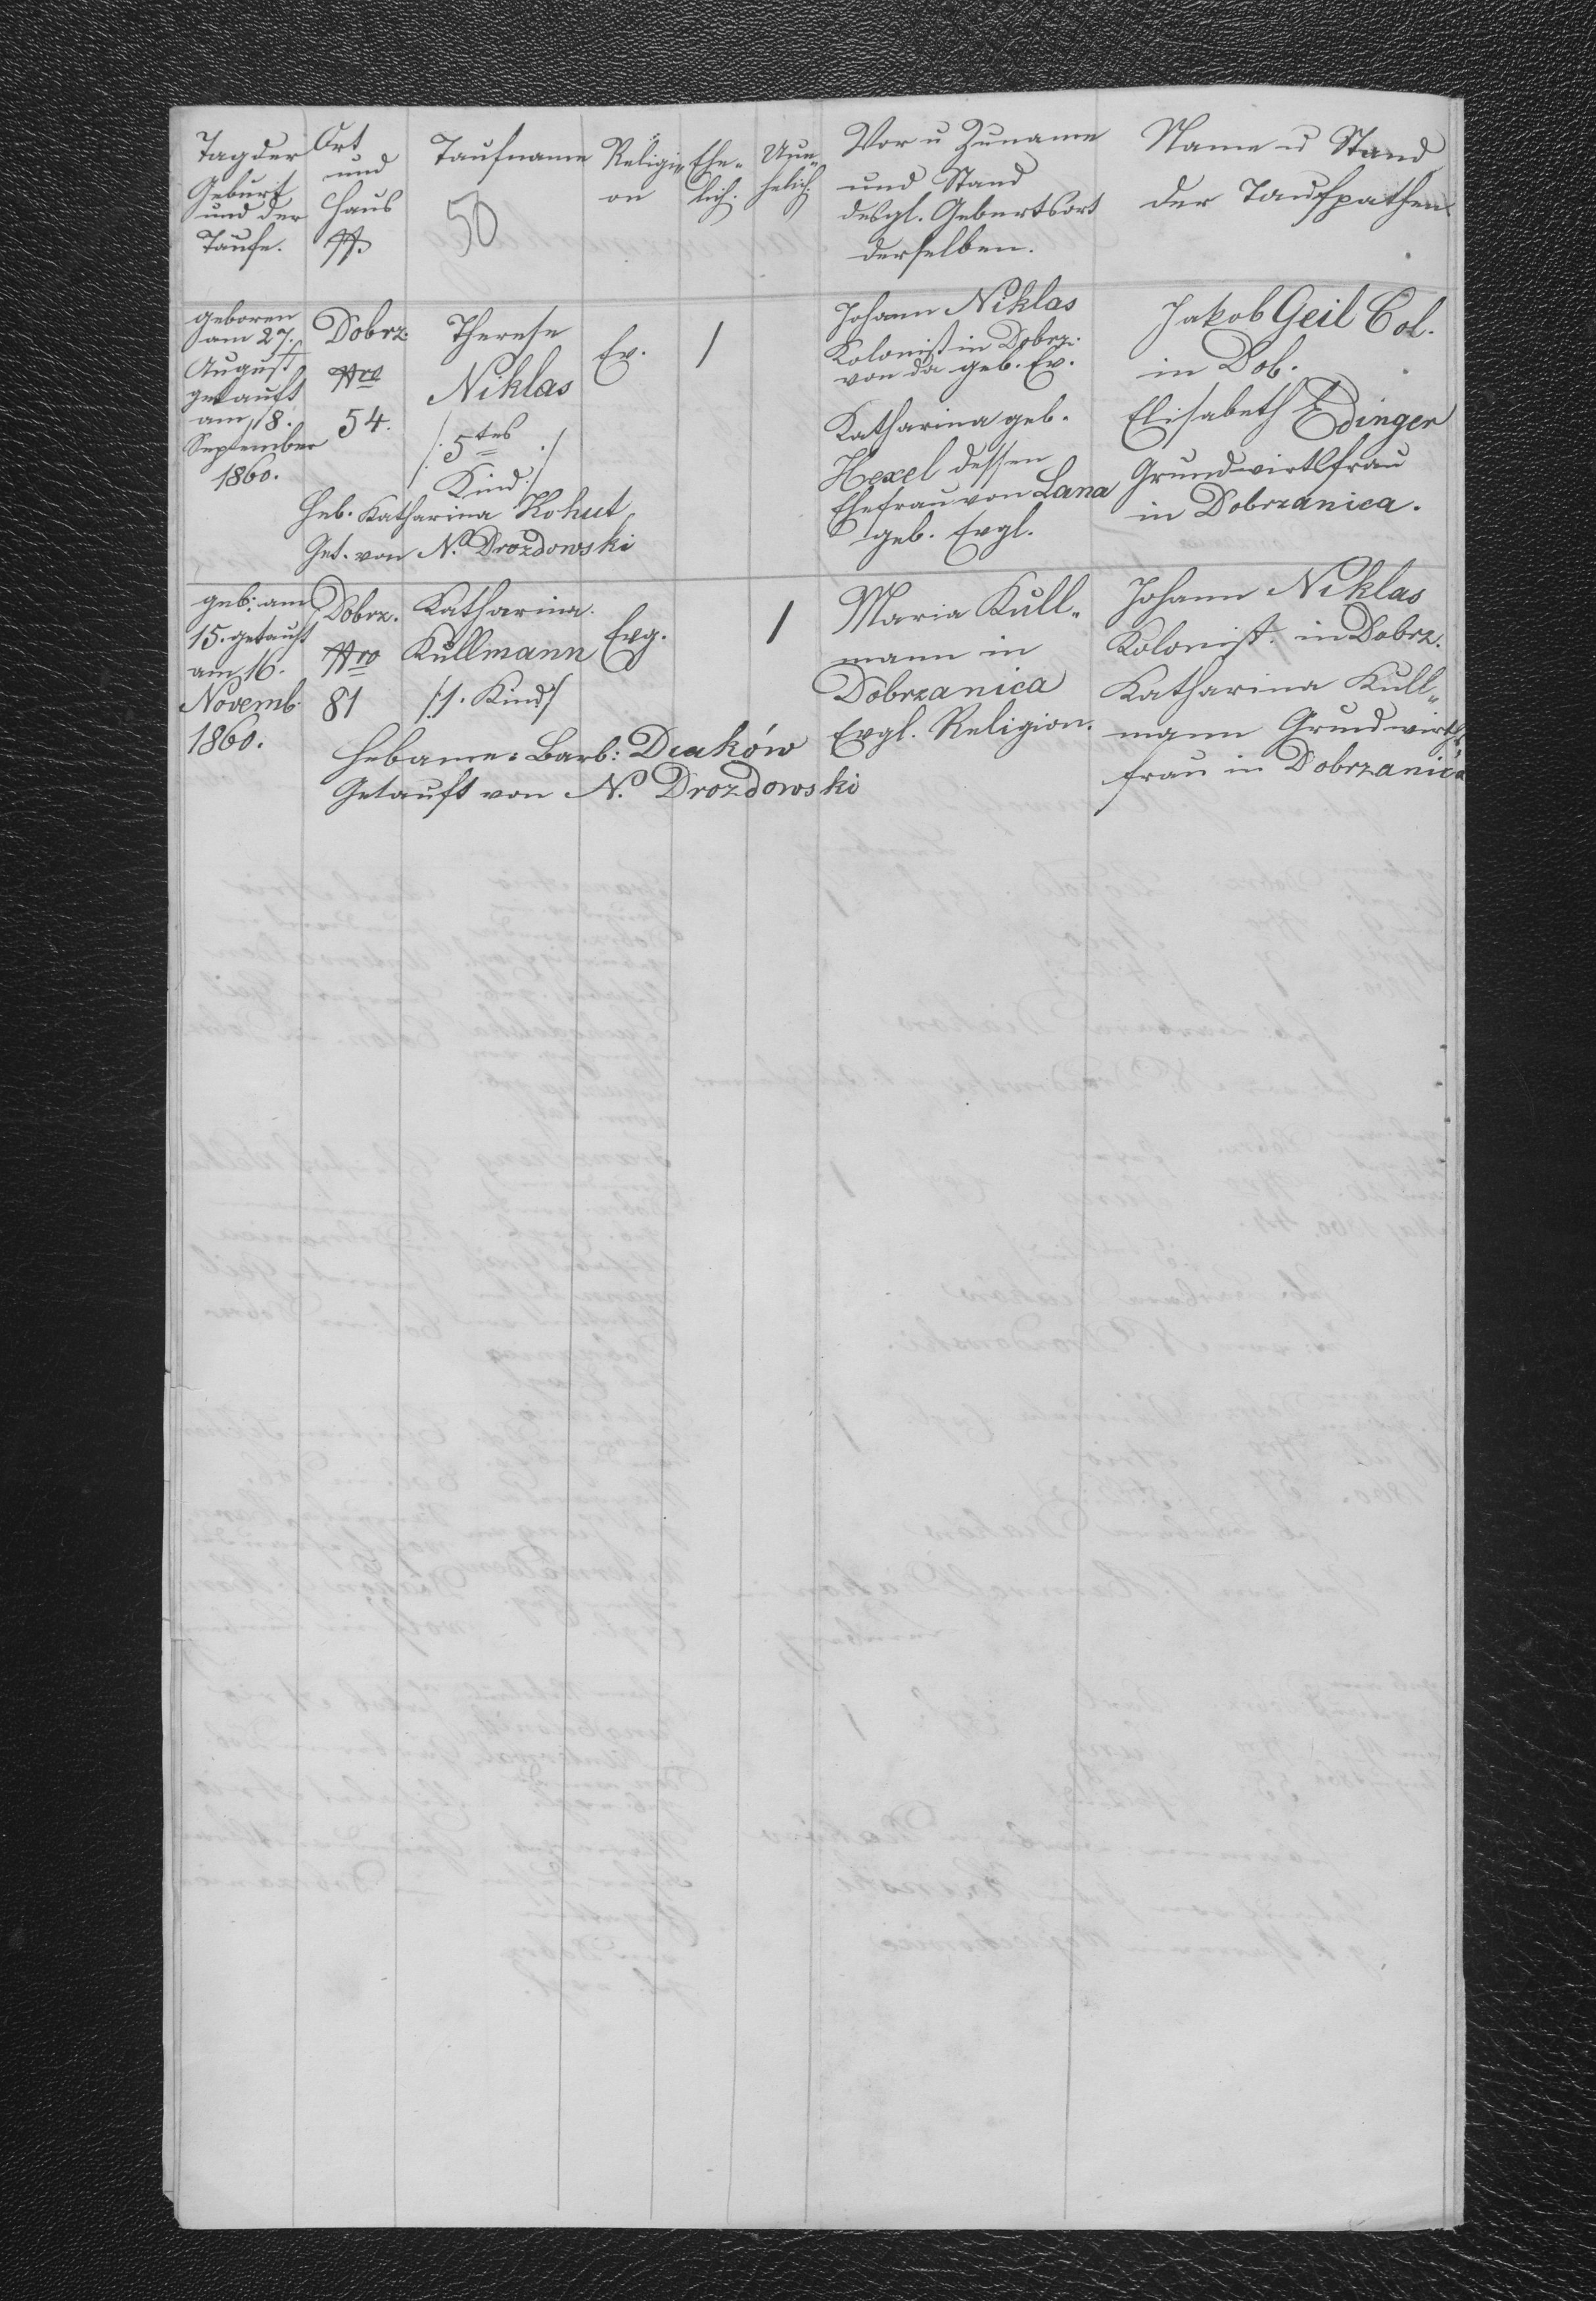 Tag der
Geburt
und der
Taufe.
Ort
und
Haus
No.
Taufname
50
Religi-
on
Ehe-
lich.
Une-
helich.
Vor u Zuname
und Stand
desgl. Geburtsort
derselben.
Name u Stand
der Taufpathen
geboren
am 27.
August
getauft
am 18.
September
1860.
Dobrz.
Nro
54.
Therese
Niklas
/: 5tes :/
Kind
Heb. Katharina Kohut
Get. von N. Drozdowski
Ev.
1
Johann Niklas
Kolonist in Dobrz.
von da geb. Ev.
Katharina geb.
Hexel dessen
Ehefrau von Lana
geb. Evgl.
Jakob Geil Col.
in Dob.
Elisabeth Edinger
Grundwirthfrau
in Dobrzanica.
geb. am
15. getauft
am 16.
Novemb.
1860.
Dobrz.
Nro
81
Katharina
Kullmann
/1. Kind/
Hebame: Barb: Diaków
Getauft von N. Drozdowski
Evg.
1
Maria Kull-
mann in
Dobrzanica
Evgl. Religion.
Johann Niklas
Kolonist. in Dobrz.
Katharina Kull-
mann Grundwirths-
frau in Dobrzanica